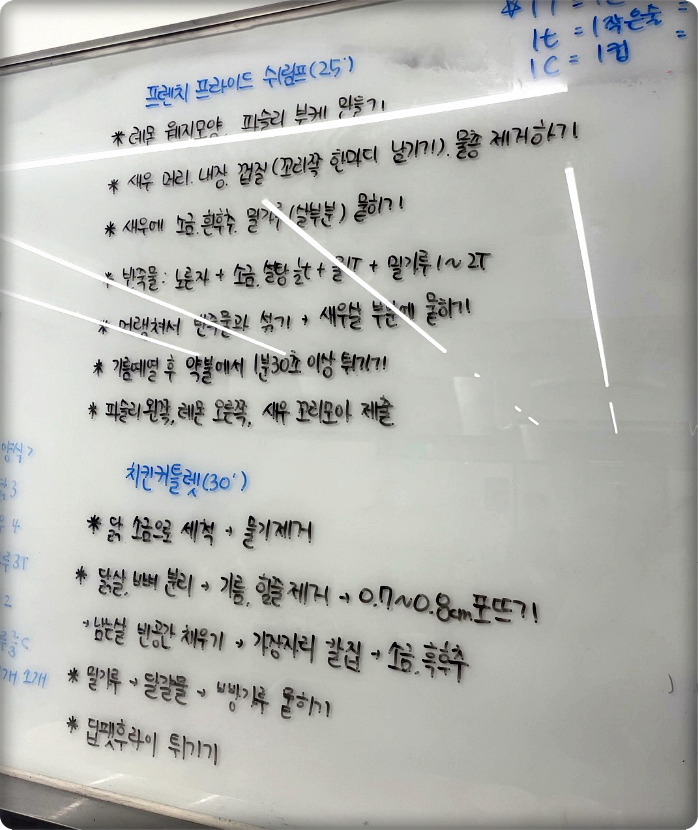 1t = 1작은술 =
1C = 1컵 =
프렌치 프라이드 쉬림프(25')
* 레몬 웨지모양, 파슬리 부케 만들기
* 새우 머리, 내장, 껍질(꼬리쪽 한마디 남기기), 물총 제거하기
* 새우에 소금, 흰후추, 밀가루(살부분) 묻히기
* 반죽물: 노른자 + 소금, 설탕 + 밀가루 1~2T
* 머랭쳐서 반죽물과 섞기 → 새우살 부분에 묻히기
* 기름예열 후 약불에서 1분30초 이상 튀기기
* 파슬리 왼쪽, 레몬 오른쪽, 새우 꼬리모아 제출
치킨커틀렛(30')
* 닭 소금으로 세척 → 물기제거
* 닭살, 뼈 분리 → 기름, 힘줄 제거 → 0.7~0.8cm 포뜨기
→ 남는살 빈공간 채우기 → 가장자리 칼집 → 소금, 흑후추
* 밀가루 → 달걀물 → 빵가루 묻히기
* 딥팻후라이 튀기기